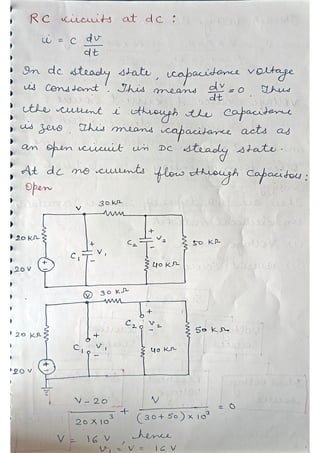 RC circuits at dc :
i = c dv/dt
In dc steady state, capacitance voltage
is constant. This means dv/dt = 0. Thus
the current i through the capacitance
is zero. This means capacitance acts as
an open circuit in DC steady state.
At dc no currents flow through Capacitors:
Open
V 30 KΩ
20 KΩ C1 + V1 - C2 + V2 - 50 KΩ
40 KΩ
+ - 20V
V 30 KΩ
20 KΩ C1 + V1 - C2 + V2 - 50 KΩ
40 KΩ
+ - 20V
V-20 / 20 x 10³ + V / (30+50) x 10³ = 0
V = 16 V, hence
V1 = V = 16 V